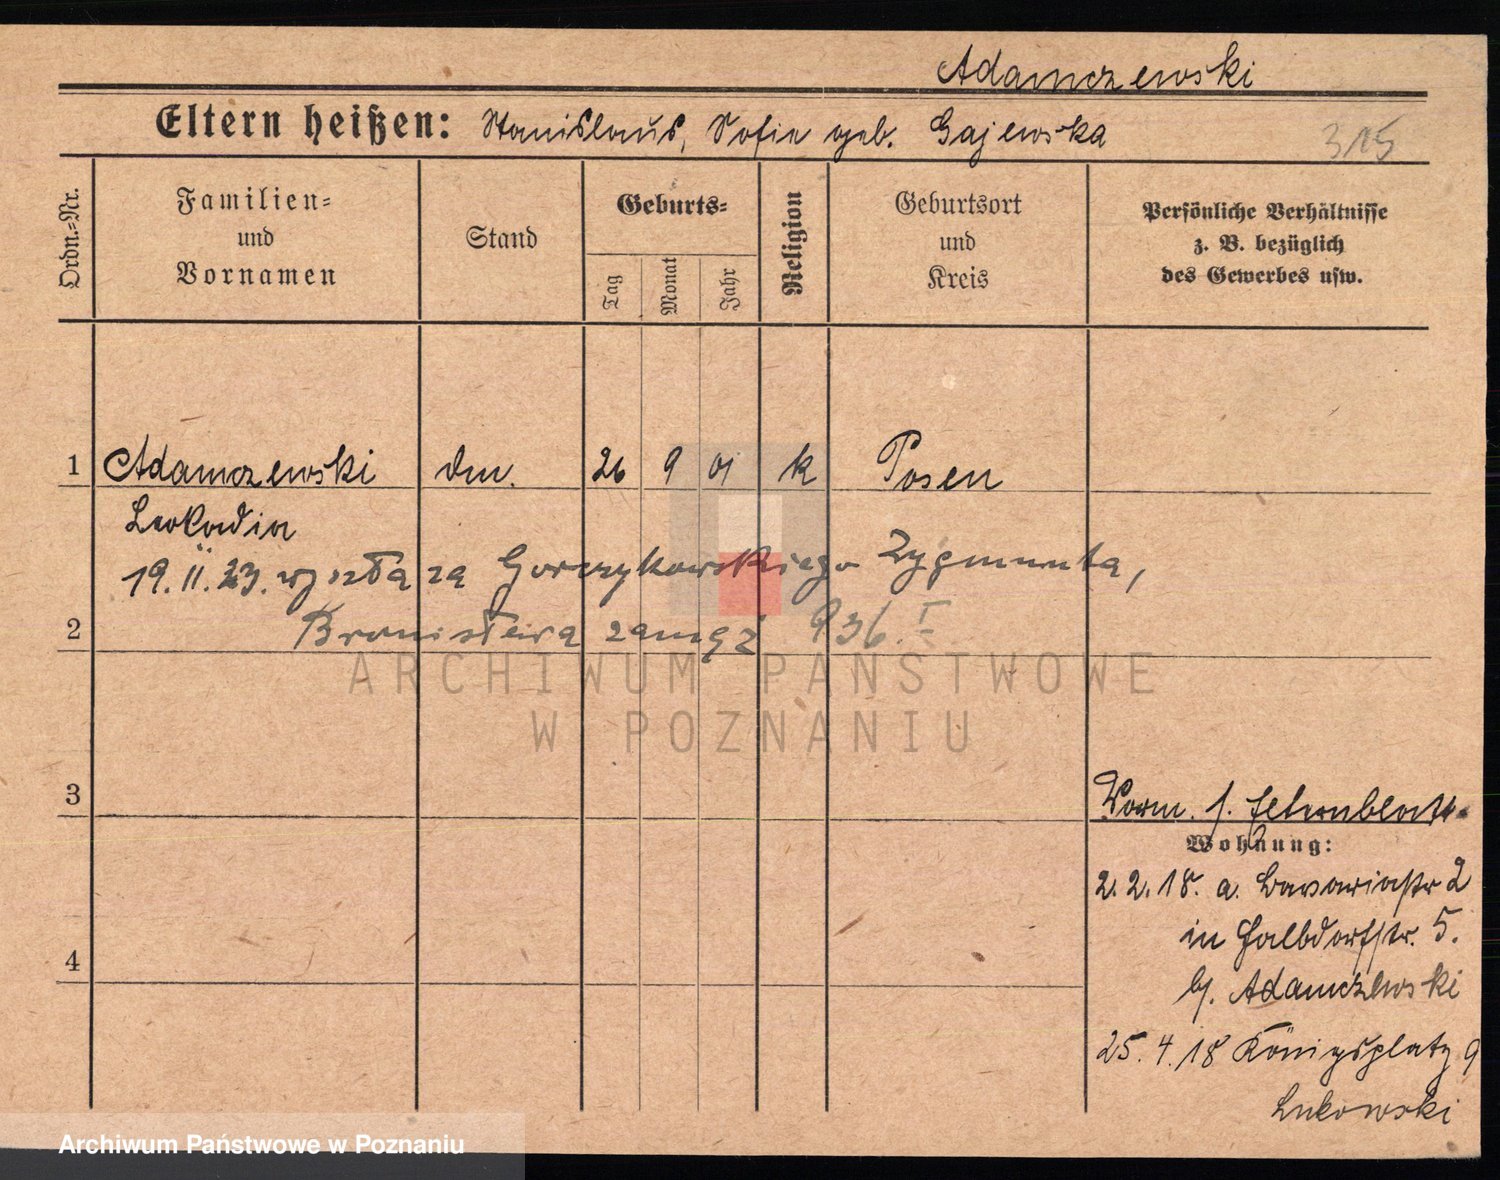 Adamczewski
Eltern heißen: Stanislaus, Sofie geb. Gajewska
315
Ordn.-Nr.
Familien-
und
Vornamen
Stand
Geburts-
Tag
Monat
Jahr
Religion
Geburtsort
und
Kreis
Persönliche Verhältnisse
z. B. bezüglich
des Gewerbes usw.
1 Adamczewski 26 9 01 k Posen
Leokadia
19. II. 23. wyszła za Gorczykowskiego Zygmunta,
2 Bronisława zamąż 936. I
ARCHIWUM PAŃSTWOWE
W POZNANIU
3
Vorm. s. Elternblatt.
Wohnung:
2.2.18. a. Bavariastr 2
in Halbdorfstr. 5.
4
b/. Adamczewski
25.4.18 Königsplatz 9
Lukowski
Archiwum Państwowe w Poznaniu